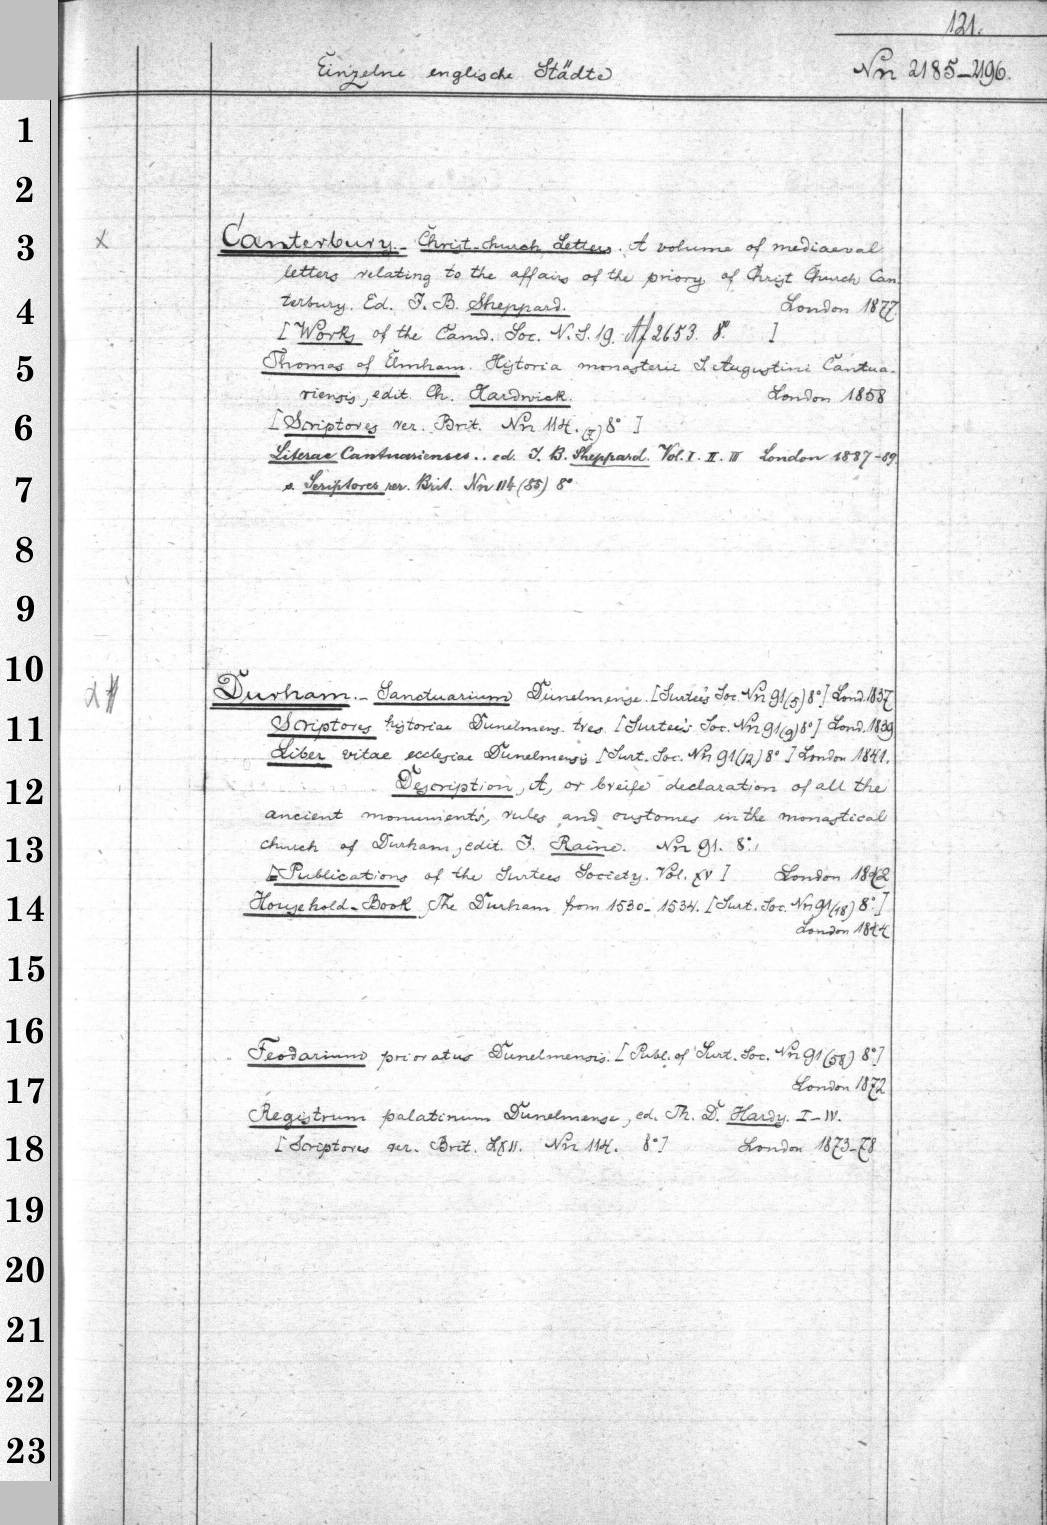 121.
Einzelne englische Städte Nn 2185-2196.
1
2
3 Canterbury.- Christ-church Letters. A volume of mediaeval
letters relating to the affairs of the priory of Christ Church Can-
4 terbury. Ed. J. B. Sheppard. London 1877.
[Works of the Camd. Soc. N.S. 19. Af 2653. 8° ]
5 Thomas of Elmham. Historia monasterii S. Augustini Cantua-
riensis, edit. Ch. Hardwick. London 1858
6 [Scriptores rer. Brit. Nn 114. 8° ]
Literae Cantuarienses.. ed. J. B. Sheppard. Vol. I. II. III London 1887-89.
7 s. Scriptores rer. Brit. Nn 114 (85) 8°
8
9
10
Durham.- Sanctuarium Dunelmense. [Surtees Soc. Nn 91(5) 8°] Lond. 1837
11 Scriptores historiae Dunelmens. tres. [Surtees's Soc. Nn 91(9) 8°] Lond. 1839
Liber vitae ecclesiae Dunelmensis [Surt. Soc. Nn 91(12) 8° ] London 1841.
12 Description, A, or breife declaration of all the
ancient monuments, rules and customes in the monastical
13 church of Durham, edit. J. Raine. Nn 91. 8°.
[Publications of the Surtees Society. Vol. XV ] London 1842
14 Household-Book, The Durham from 1530-1534. [Surt. Soc. Nn 91(18) 8°.]
London 1844
15
16
Feodarium prioratus Dunelmensis. [Publ. of Surt. Soc. Nn 91(58) 8°]
17 London 1872
Registrum palatinum Dunelmense, ed. Th. D. Hardy. I-IV.
18 [Scriptores rer. Brit. LXII. Nn 114. 8°] London 1873-78
19
20
21
22
23